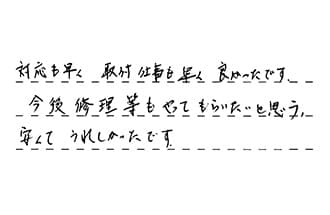 対応も早く 取付仕事も早く 良かったです。
今後修理等もやってもらいたいと思う。
安くて うれしかったです。